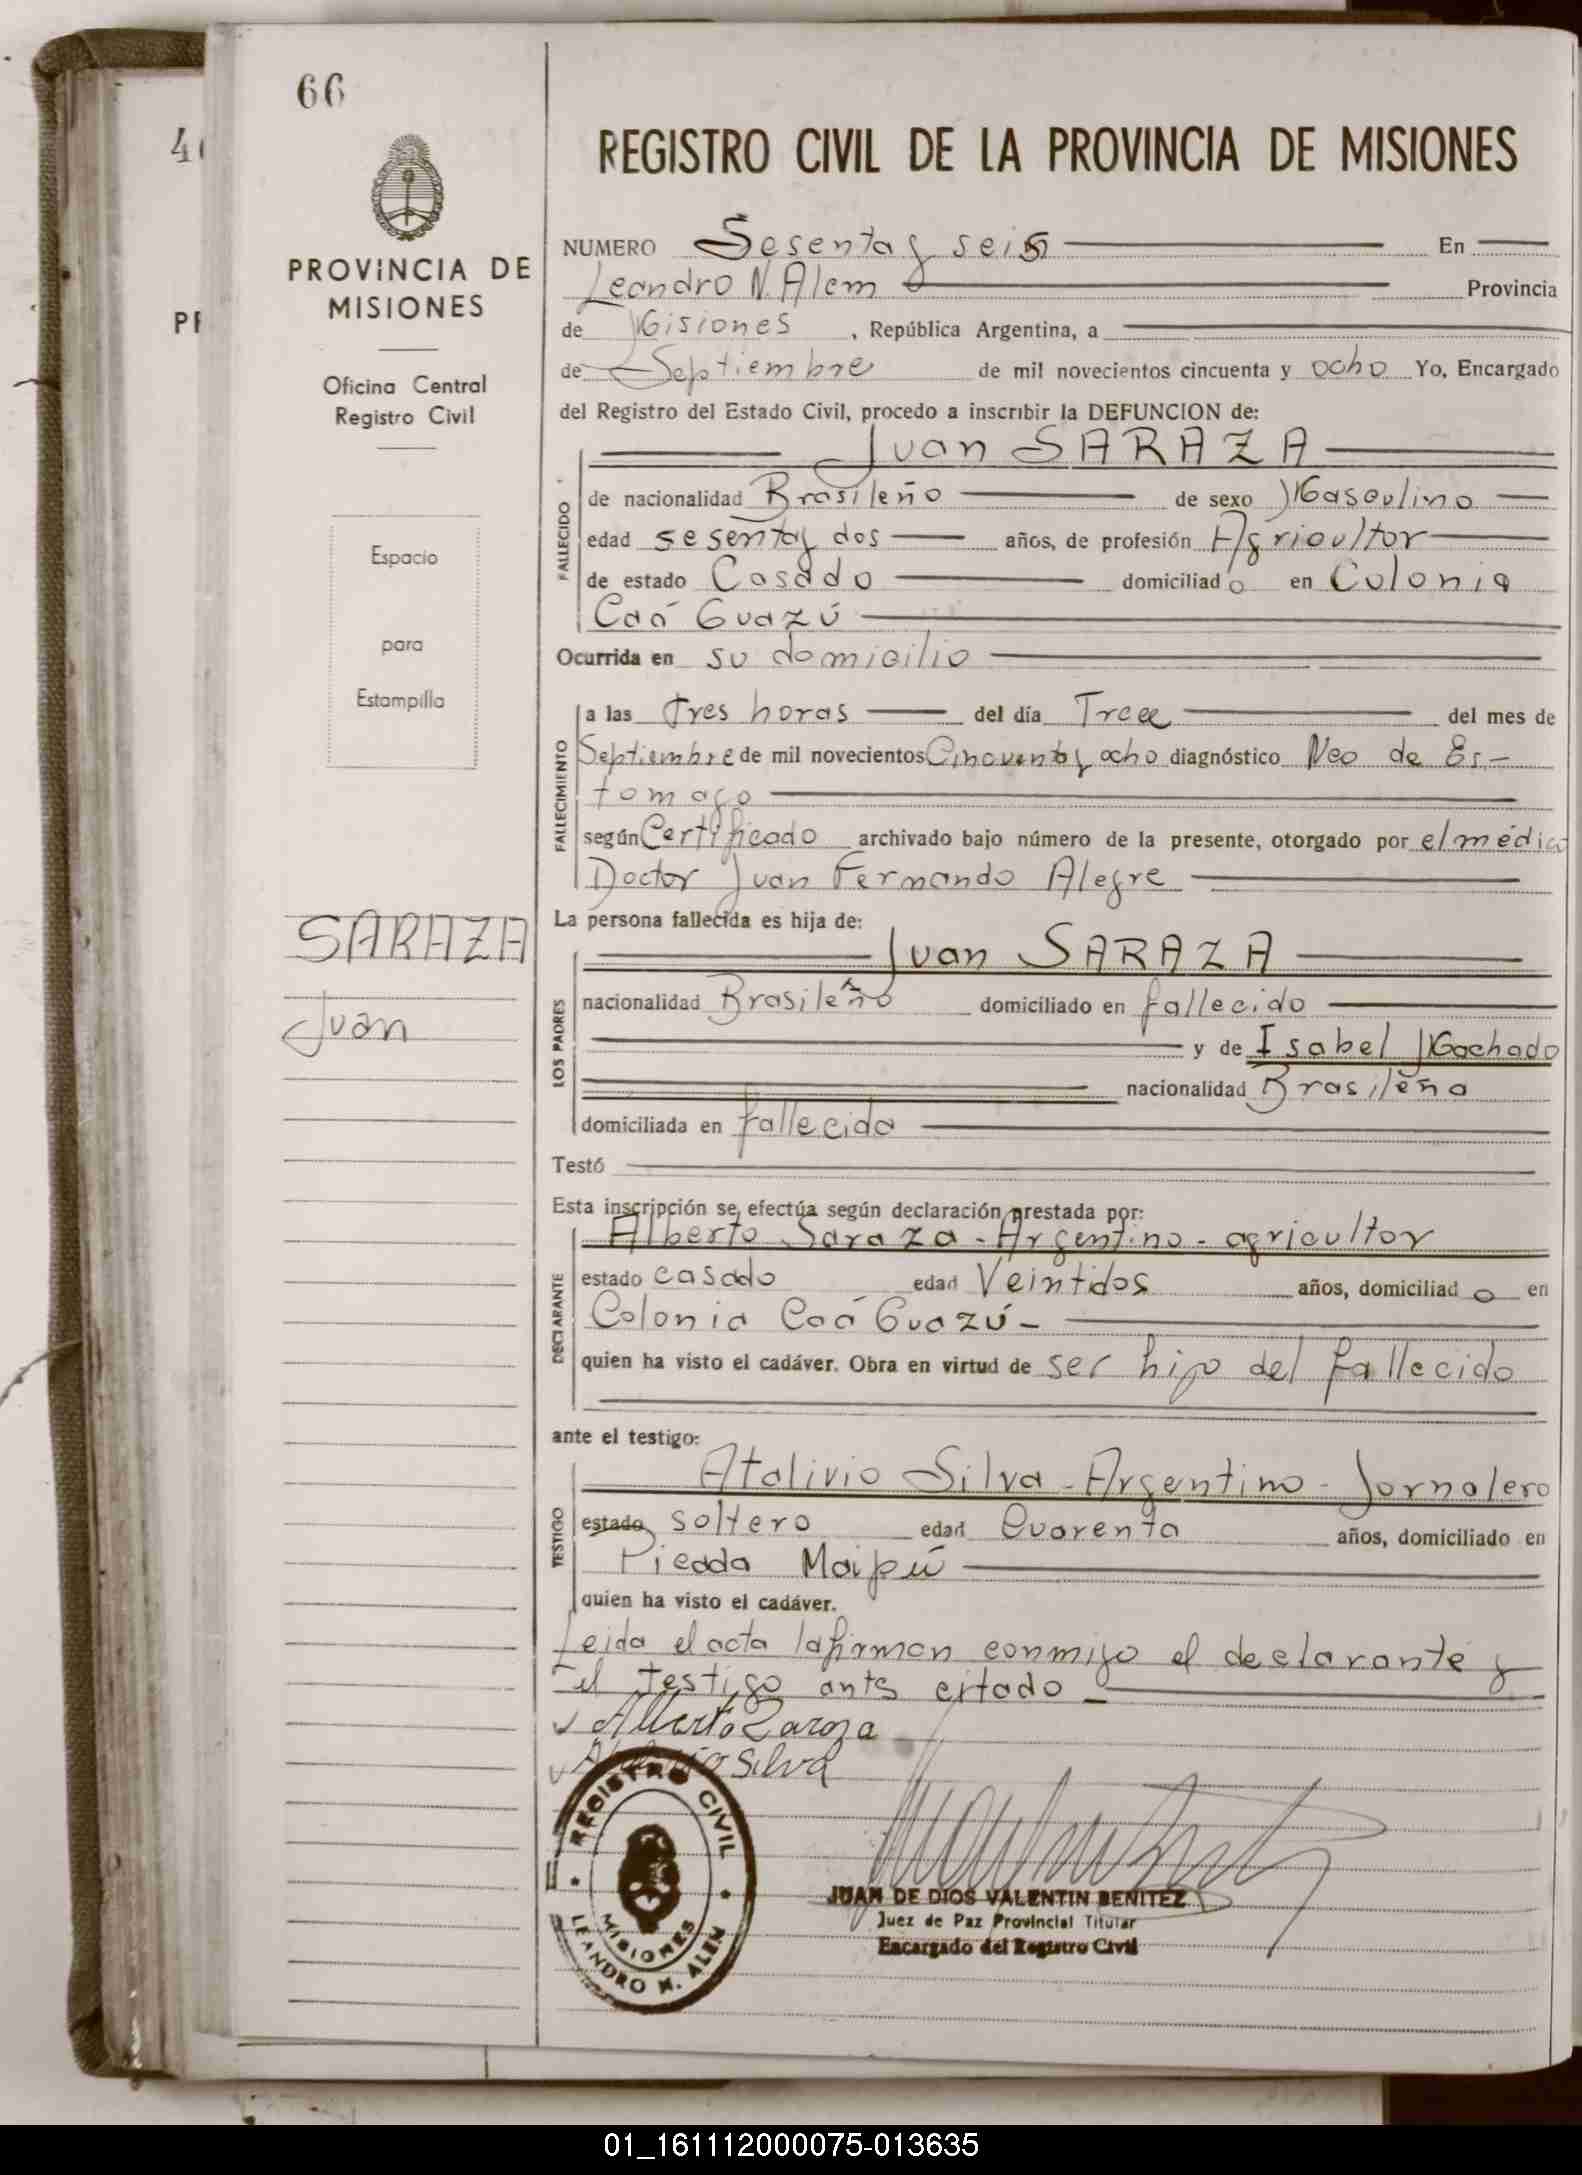 66
4
PR
PROVINCIA DE
MISIONES
Oficina Central
Registro Civil
Espacio
para
Estampilla
SARAZA
Juan
REGISTRO CIVIL DE LA PROVINCIA DE MISIONES
NUMERO Sesenta y seis En
Leandro N. Alem Provincia
de Misiones, República Argentina, a
de Septiembre de mil novecientos cincuenta y ocho Yo, Encargado
del Registro del Estado Civil, procedo a inscribir la DEFUNCION de:
Juan SARAZA
FALLECIDO
de nacionalidad Brasileño de sexo Masculino
edad sesenta y dos años, de profesión Agricultor
de estado Casado domiciliado en Colonia
Caá Guazú
Ocurrida en su domicilio
FALLECIMIENTO
a las tres horas del día Trece del mes de
Septiembre de mil novecientos Cincuenta y ocho diagnóstico Neo de Es-
tomago
según Certificado archivado bajo número de la presente, otorgado por el médico
Doctor Juan Fernando Alegre
La persona fallecida es hija de:
LOS PADRES
Juan SARAZA
nacionalidad Brasileño domiciliado en fallecido
y de Isabel Machado
nacionalidad Brasileña
domiciliada en fallecida
Testó
Esta inscripción se efectúa según declaración prestada por:
DECLARANTE
Alberto Saraza - Argentino - agricultor
estado casado edad Veintidos años, domiciliado en
Colonia Caá Guazú -
quien ha visto el cadáver. Obra en virtud de ser hijo del fallecido
ante el testigo:
TESTIGO
Atalivio Silva - Argentino - Jornalero
estado soltero edad Cuarenta años, domiciliado en
Picada Maipú
quien ha visto el cadáver.
Leida el acta la firman conmigo el declarante y
el testigo ants citado -
Alberto Zaroza
Silva
REGISTRO CIVIL
MISIONES
LEANDRO N. ALEM
JUAN DE DIOS VALENTIN BENITEZ
Juez de Paz Provincial Titular
Encargado del Registro Civil
01_161112000075-013635